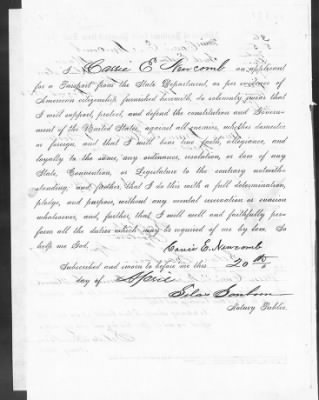 I Carrie E. Newcomb an applicant
for a Passport from the State Department, as per evidence of
American citizenship furnished herewith, do solemnly swear that
I will support, protect, and defend the constitution and Govern-
ment of the United States, against all enemies, whether domestic
or foreign, and that I will bear true faith, allegiance, and
loyalty to the same, any ordinance, resolution, or law of any
State, Convention, or Legislature to the contrary notwith-
standing, and further, that I do this with a full determination,
pledge, and purpose, without any mental reservation or evasion
whatsoever, and, further, that I will well and faithfully per-
form all the duties which may be required of me by law. So
help me God.
Carrie E. Newcomb
Subscribed and sworn to before me this 20th
day of April
Notary Public.